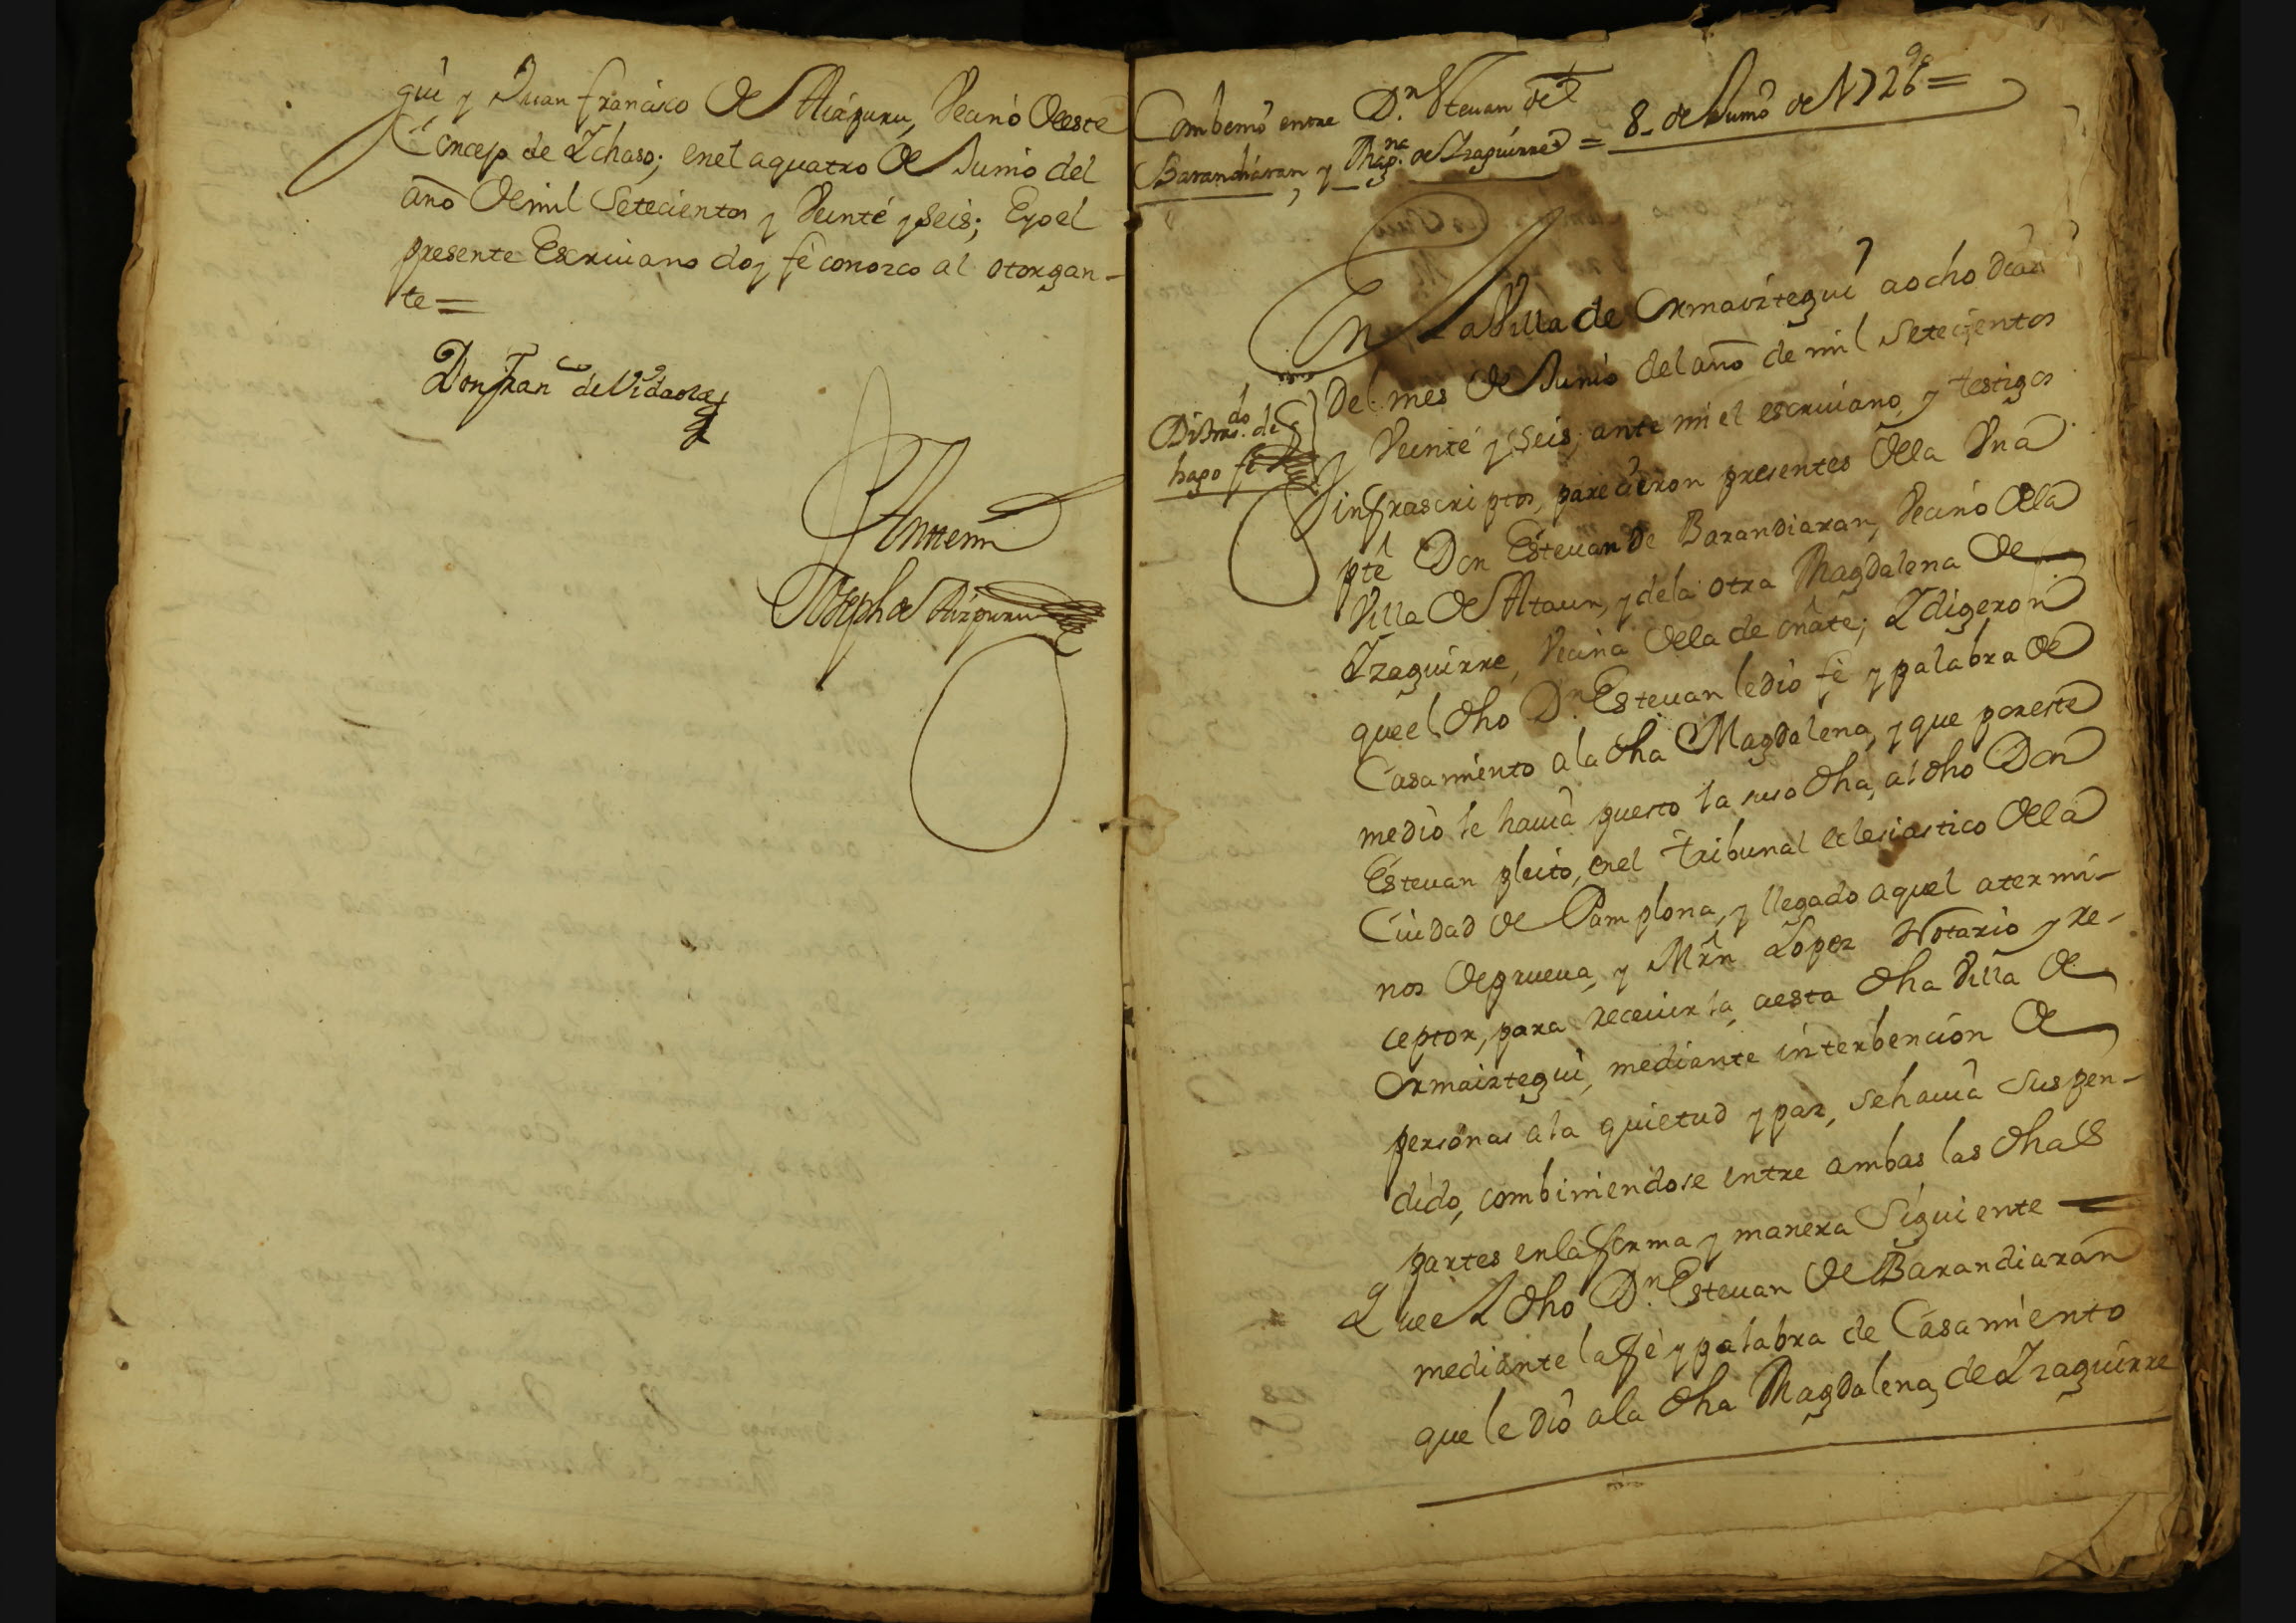 gui y Juan francisco de Aizpuru, Vecinò deeste
Concejo de Ychaso; enel aquatro de Junio del
año demil Setecientos y Veinté y seis; Eyoel
presente Escriuano doy fè conozco al otorgan-
te=
Don Fran.co de Vidaola
Antemi
Joseph de Aizpuru
Combenio entre D.n Esteuan de
Barandiaran, y Mag.na de Yzaguirre = 8 de Junio de 1726 =
En la Villa de Ormaiztegui aocho dias
Del mes de Junio del año de mil Setezientos
y Veinte y Seis, ante mi el escriuano, y testigos
infrascriptos, parecieron presentes dela Vna
pte Don Esteuan de Barandiaran, Vecino dela
Villa de Ataun, y dela otra Magdalena de
Yzaguirre, Vecina dela de oñate; Y digeron
queel dho D.n Esteuan ledio fè y palabra de
Casamiento ala dha Magdalena, y que poreste
medio le hauia puesto la suso dha, al dho Don
Esteuan pleito, enel tribunal eclesiastico dela
Ciudad de Pamplona, y llegado aquel atermi-
nos deprueua, y Mrn Lopez Notario y re-
ceptor, para receuirla, aesta dha Villa de
Ormaiztegui, mediante interbencion de
personas ala quietud y paz, sehauia suspen-
dido, combiniendose entre ambas las dhas
partes enla forma y manera Siguiente =
Que el dho D.n Esteuan de Barandiaran
mediante lafè y palabra de Casamiento
que le diò ala dha Magdalena de Yzaguirre
hago fe